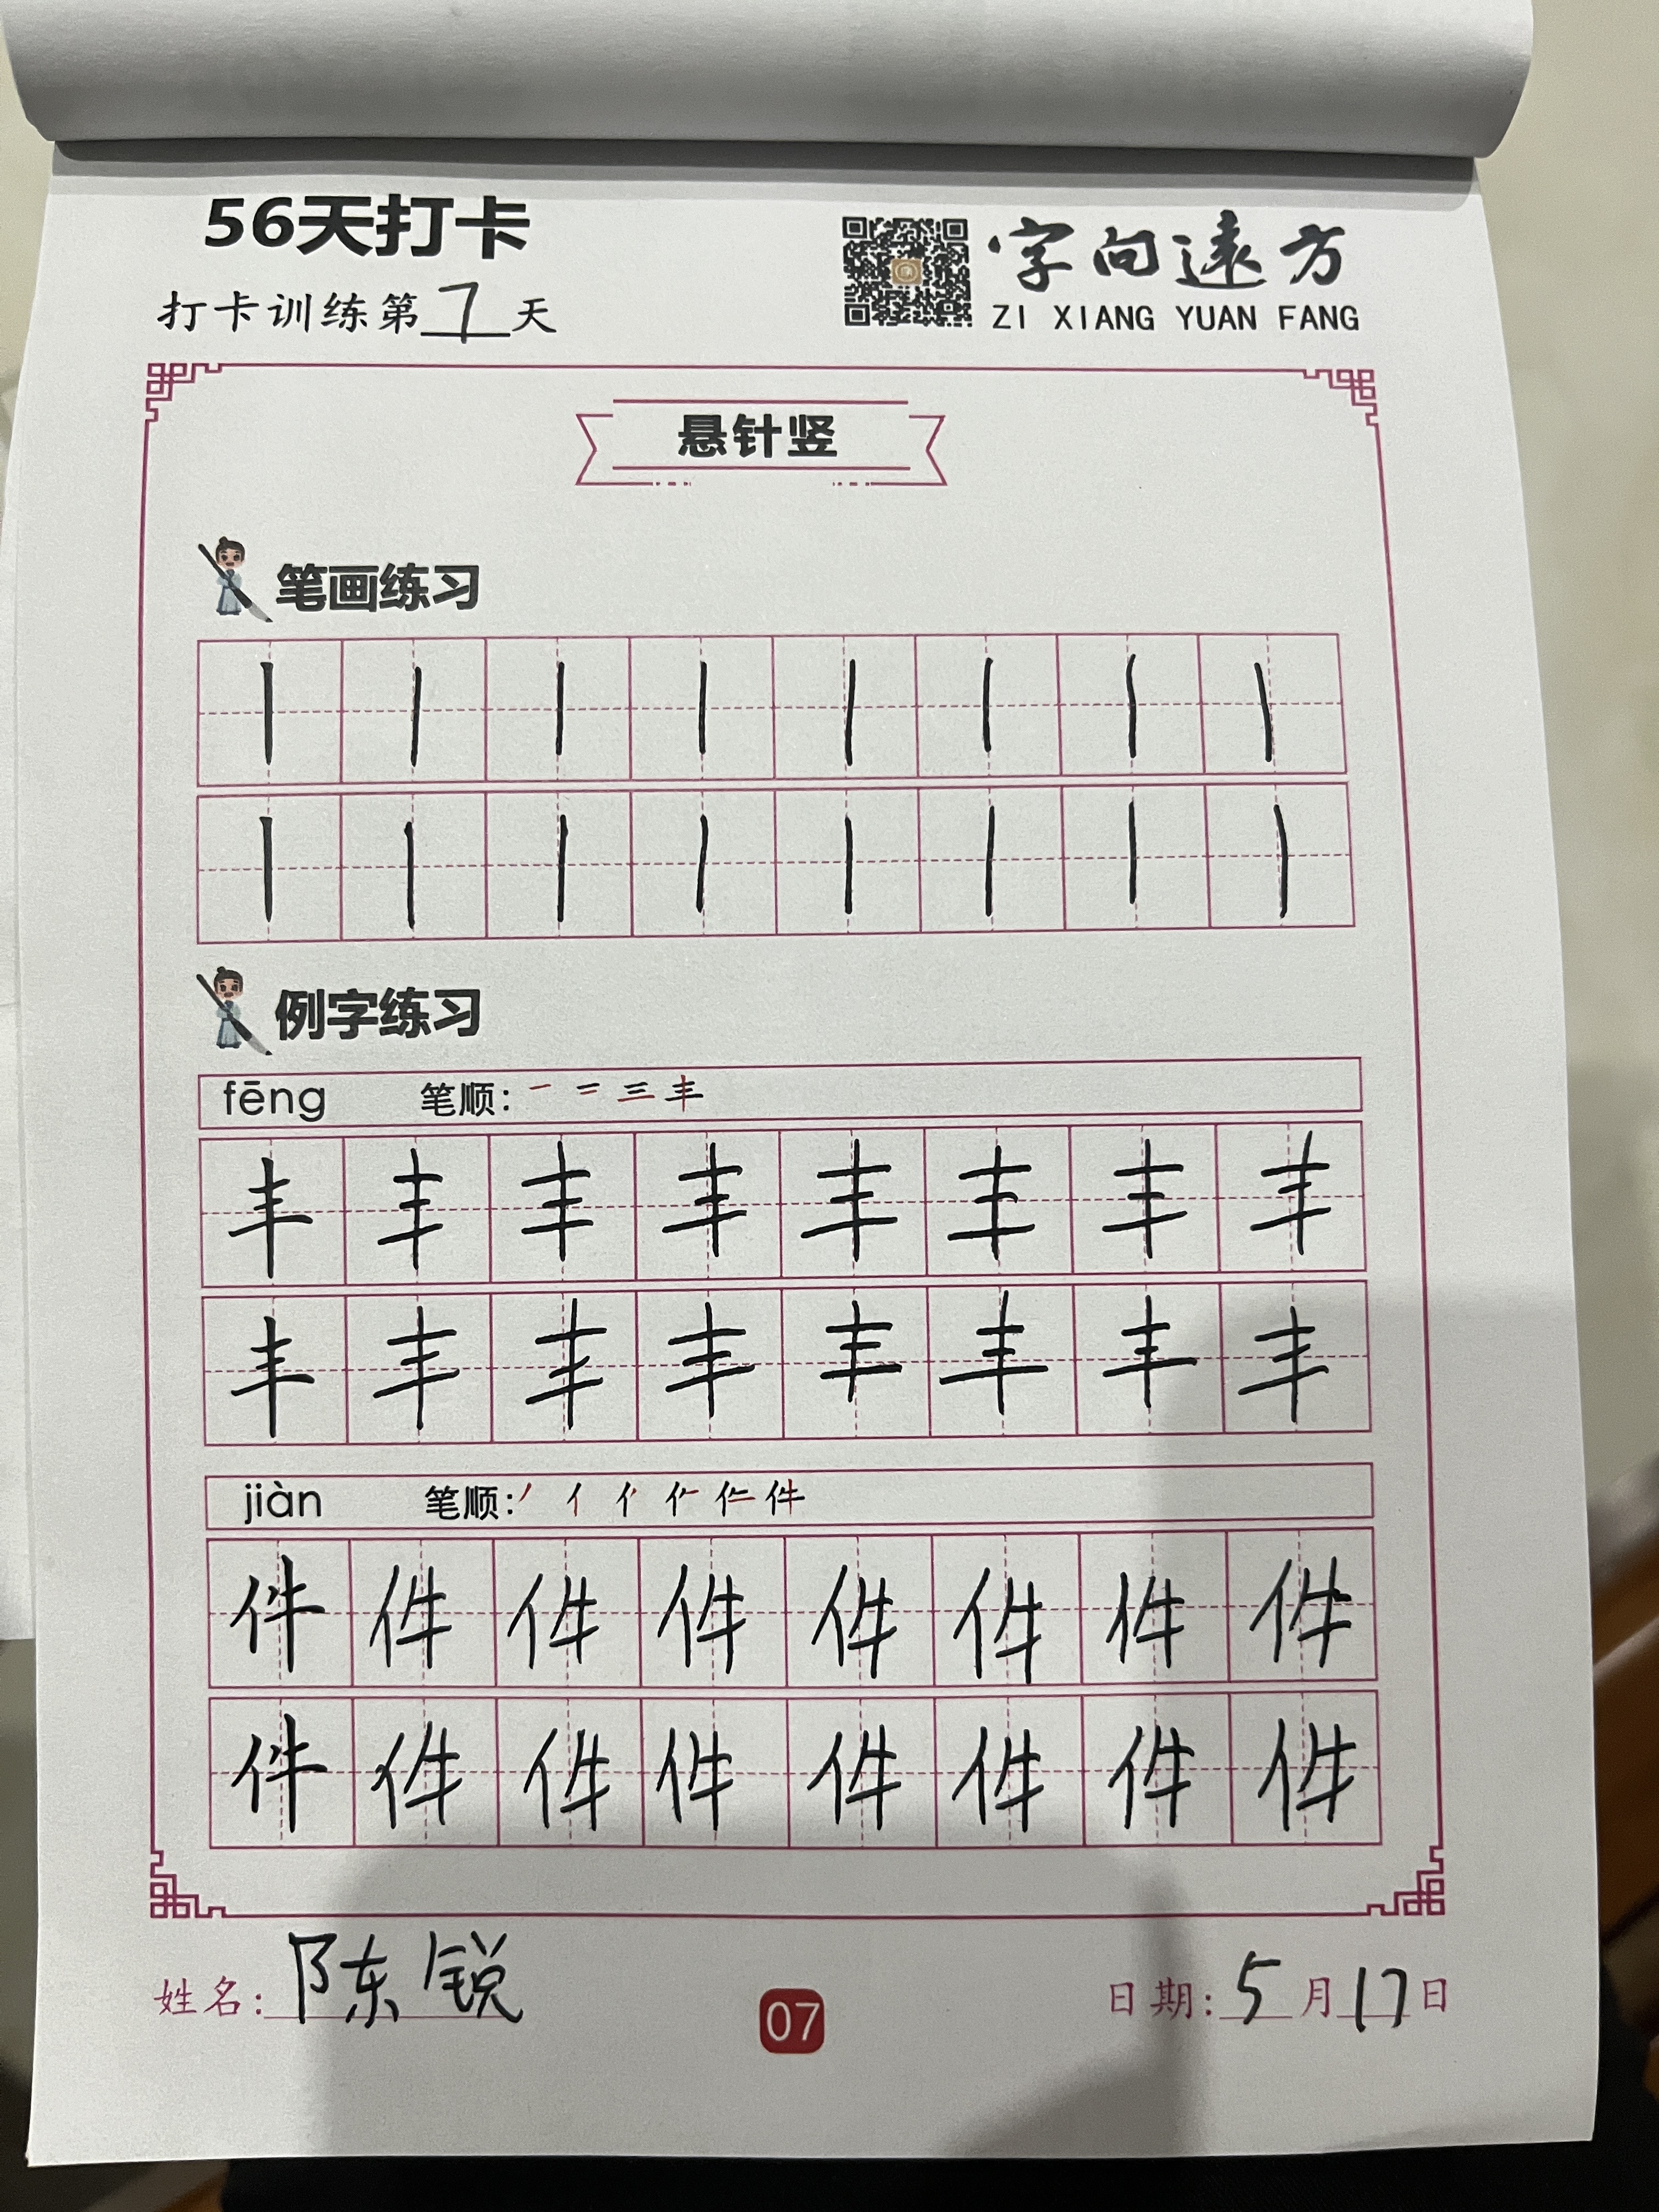 56天打卡
打卡训练第7天
字向远方
ZI XIANG YUAN FANG
悬针竖
笔画练习
丨 丨 丨 丨 丨 丨 丨 丨
丨 丨 丨 丨 丨 丨 丨 丨
例字练习
fēng 笔顺: 一 二 三 丰
丰 丰 丰 丰 丰 丰 丰 丰
丰 丰 丰 丰 丰 丰 丰 丰
jiàn 笔顺: 丿 亻 件
件 件 件 件 件 件 件 件
件 件 件 件 件 件 件 件
姓名: 陈锐
07
日期: 5月17日